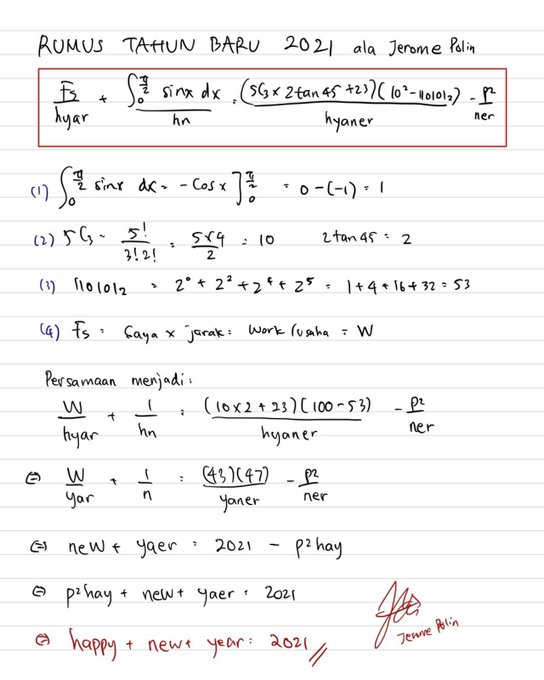 RUMUS TAHUN BARU 2021 ala Jerome Polin
Fs/hyar + ∫₀^(π/2) sinx dx/hn = (5C3 x 2tan45 + 23)(10² - 110101₂)/hyaner - p²/ner
(1) ∫₀^(π/2) sinx dx = -cos x ]₀^(π/2) = 0-(-1) = 1
(2) 5C3 = 5!/3!2! = 5x4/2 = 10 2tan45 = 2
(3) 110101₂ = 2⁰ + 2² + 2⁴ + 2⁵ = 1+4+16+32 = 53
(4) Fs = Gaya x jarak = Work/usaha = W
Persamaan menjadi:
W/hyar + 1/hn = (10x2+23)(100-53)/hyaner - p²/ner
⇔ W/yar + 1/n = (43)(47)/yaner - p²/ner
⇔ neW + yaer = 2021 - p²hay
⇔ p²hay + new + yaer = 2021
⇔ happy + new + year = 2021
Jerome Polin